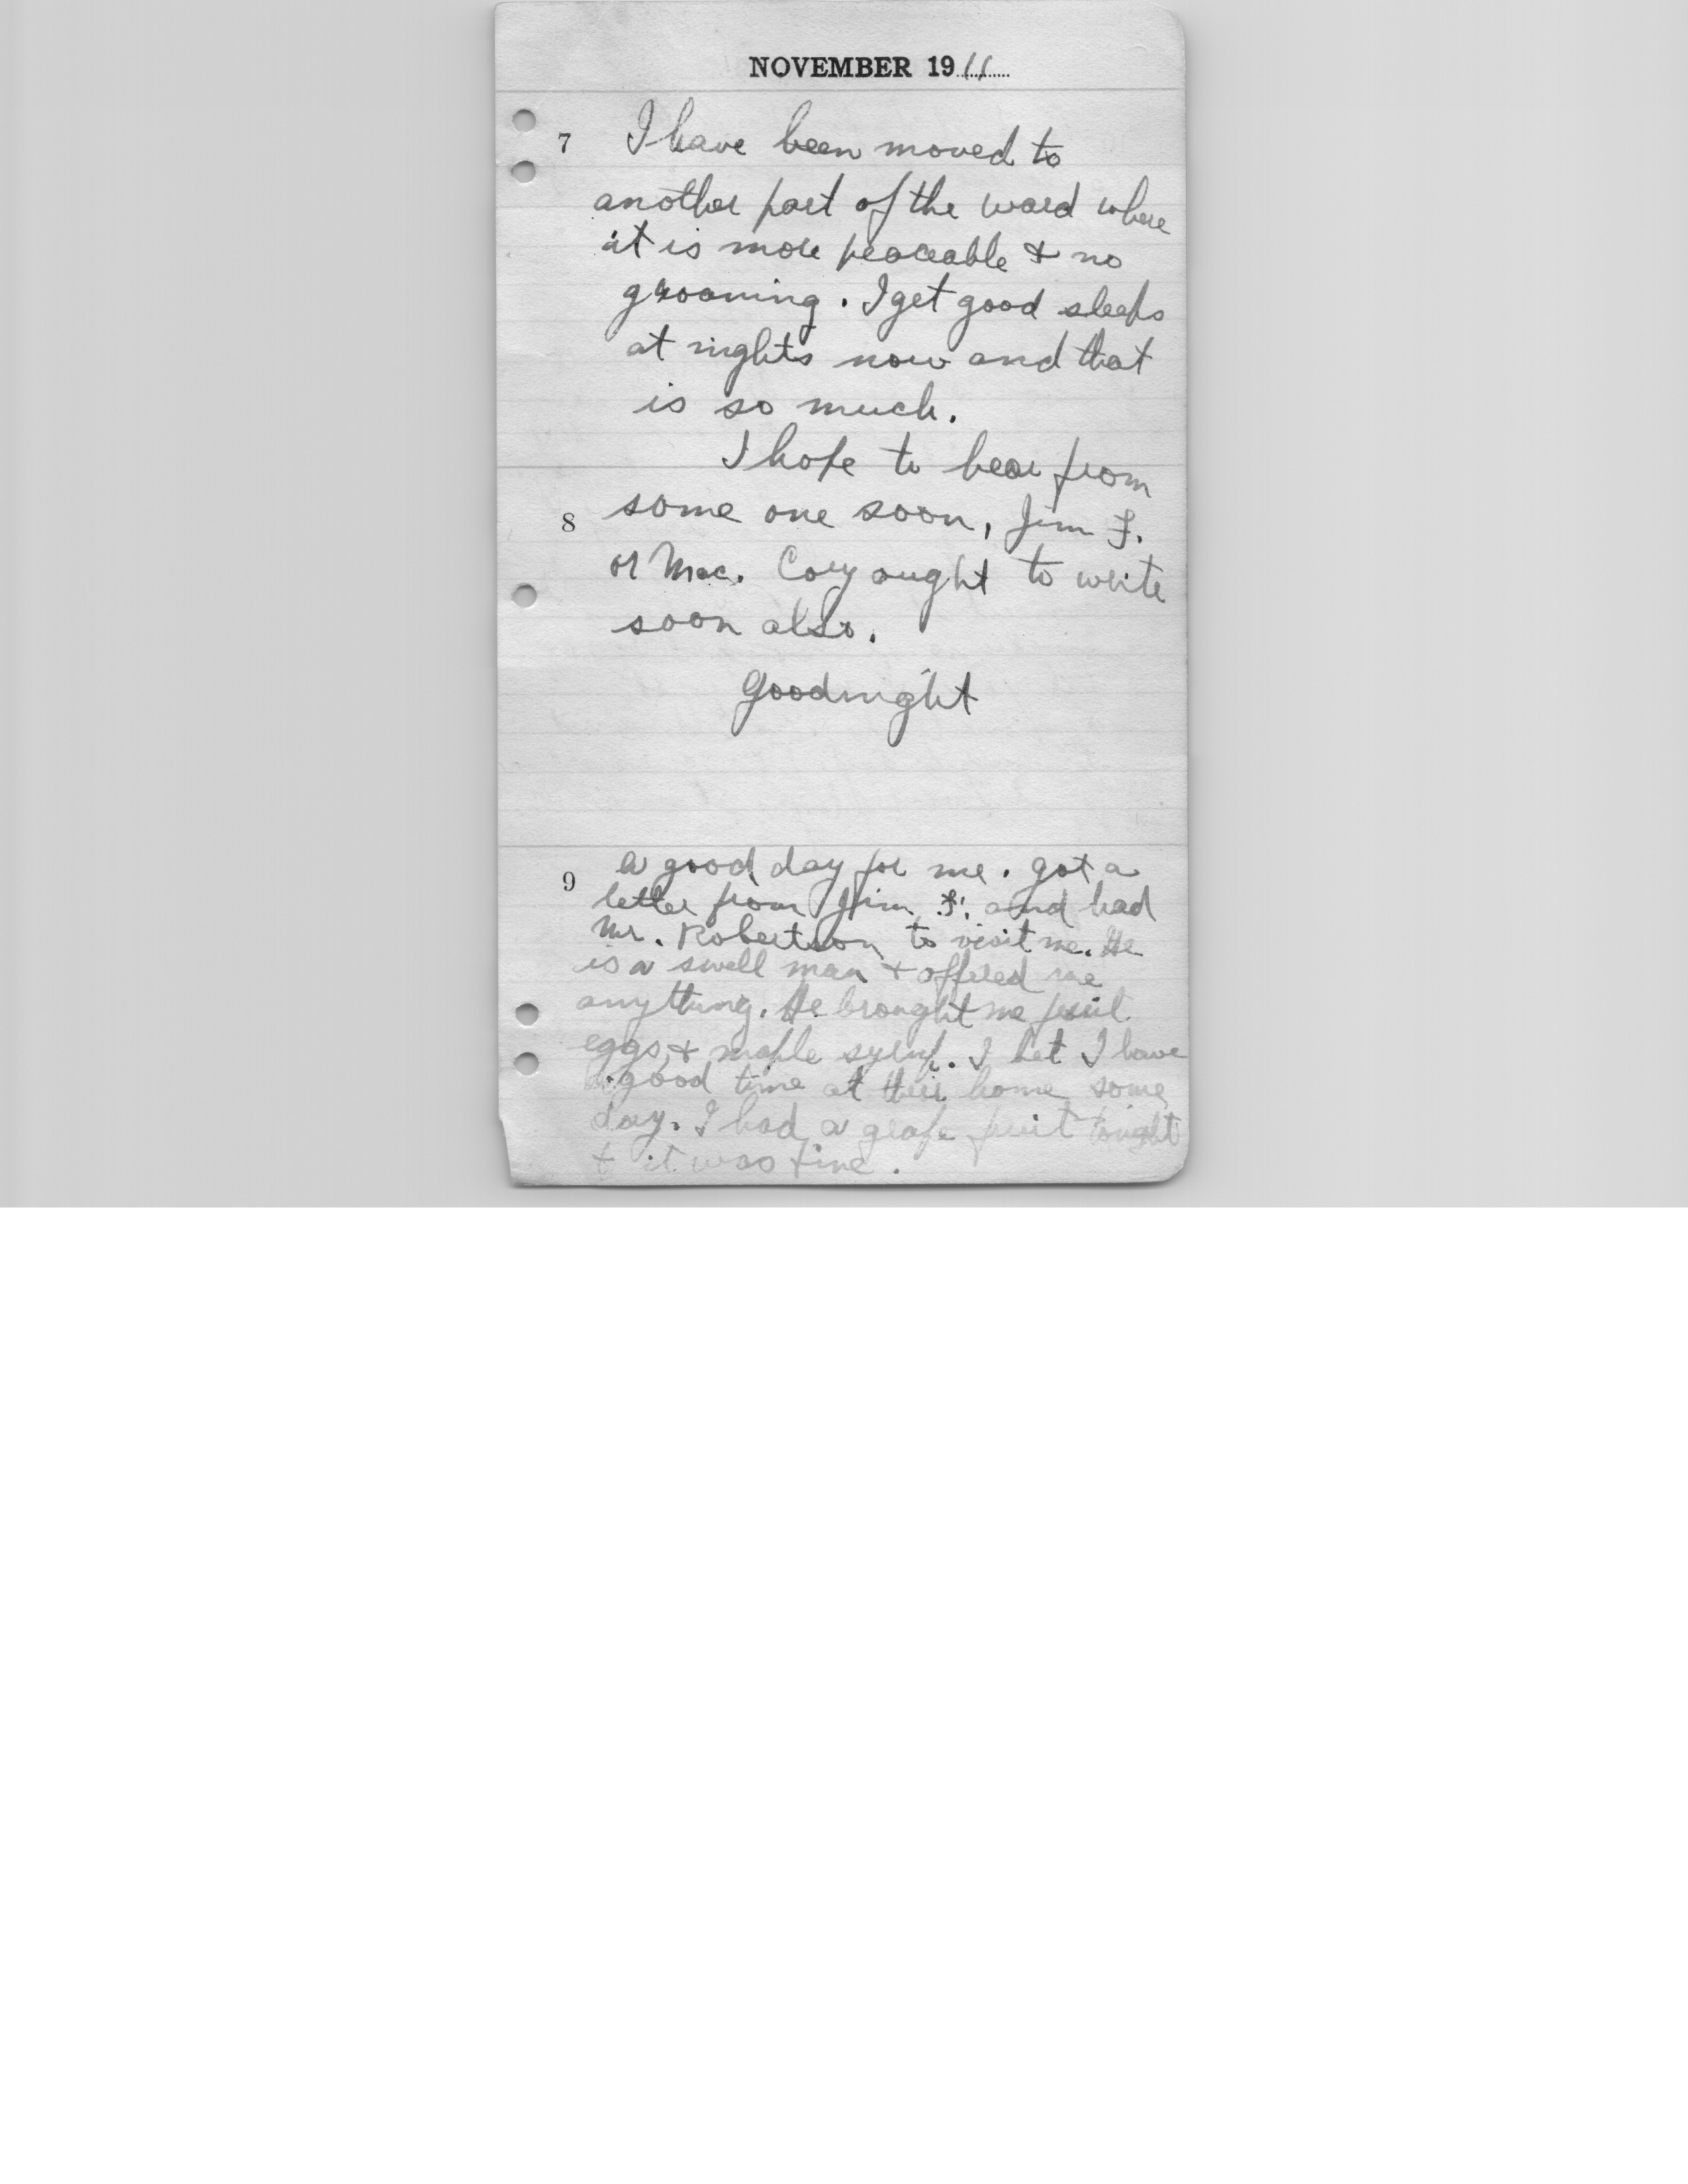 NOVEMBER 19 11
7 I have been moved to
another part of the ward where
it is more peaceable & no
groaning. I get good sleeps
at nights now and that
is so much.
I hope to hear from
8 some one soon, Jim F.
or Mac. Cory ought to write
soon also.
Goodnight
9 A good day for me. got a
letter from Jim F. and had
Mr. Robertson to visit me. He
is a swell man + offered me
anything. He brought me fruit
eggs & maple syrup. I bet I have
good time at their home some
day. I had a grape fruit tonight
+ it was fine.